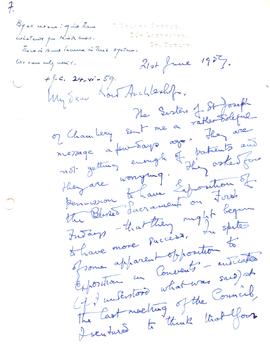 7
By all means: give them
whatever you think wise.
There is some lessons in their system.
+ J.C. 24.vi.59.
21st June 1959.
My dear Lord Archbishop,
The Sisters of St Joseph
of Chambery sent me a rather doleful
message a few days ago. They are
not getting enough patients and
they are worrying. They asked for
permission to have Exposition of
the Blessed Sacrament on First
Fridays that they might begin
to have more success. In spite
of some apparent opposition to
Exposition in Convents - indicated
(if I understood what was said) at
the last meeting of the Council,
I ventured to think that Your